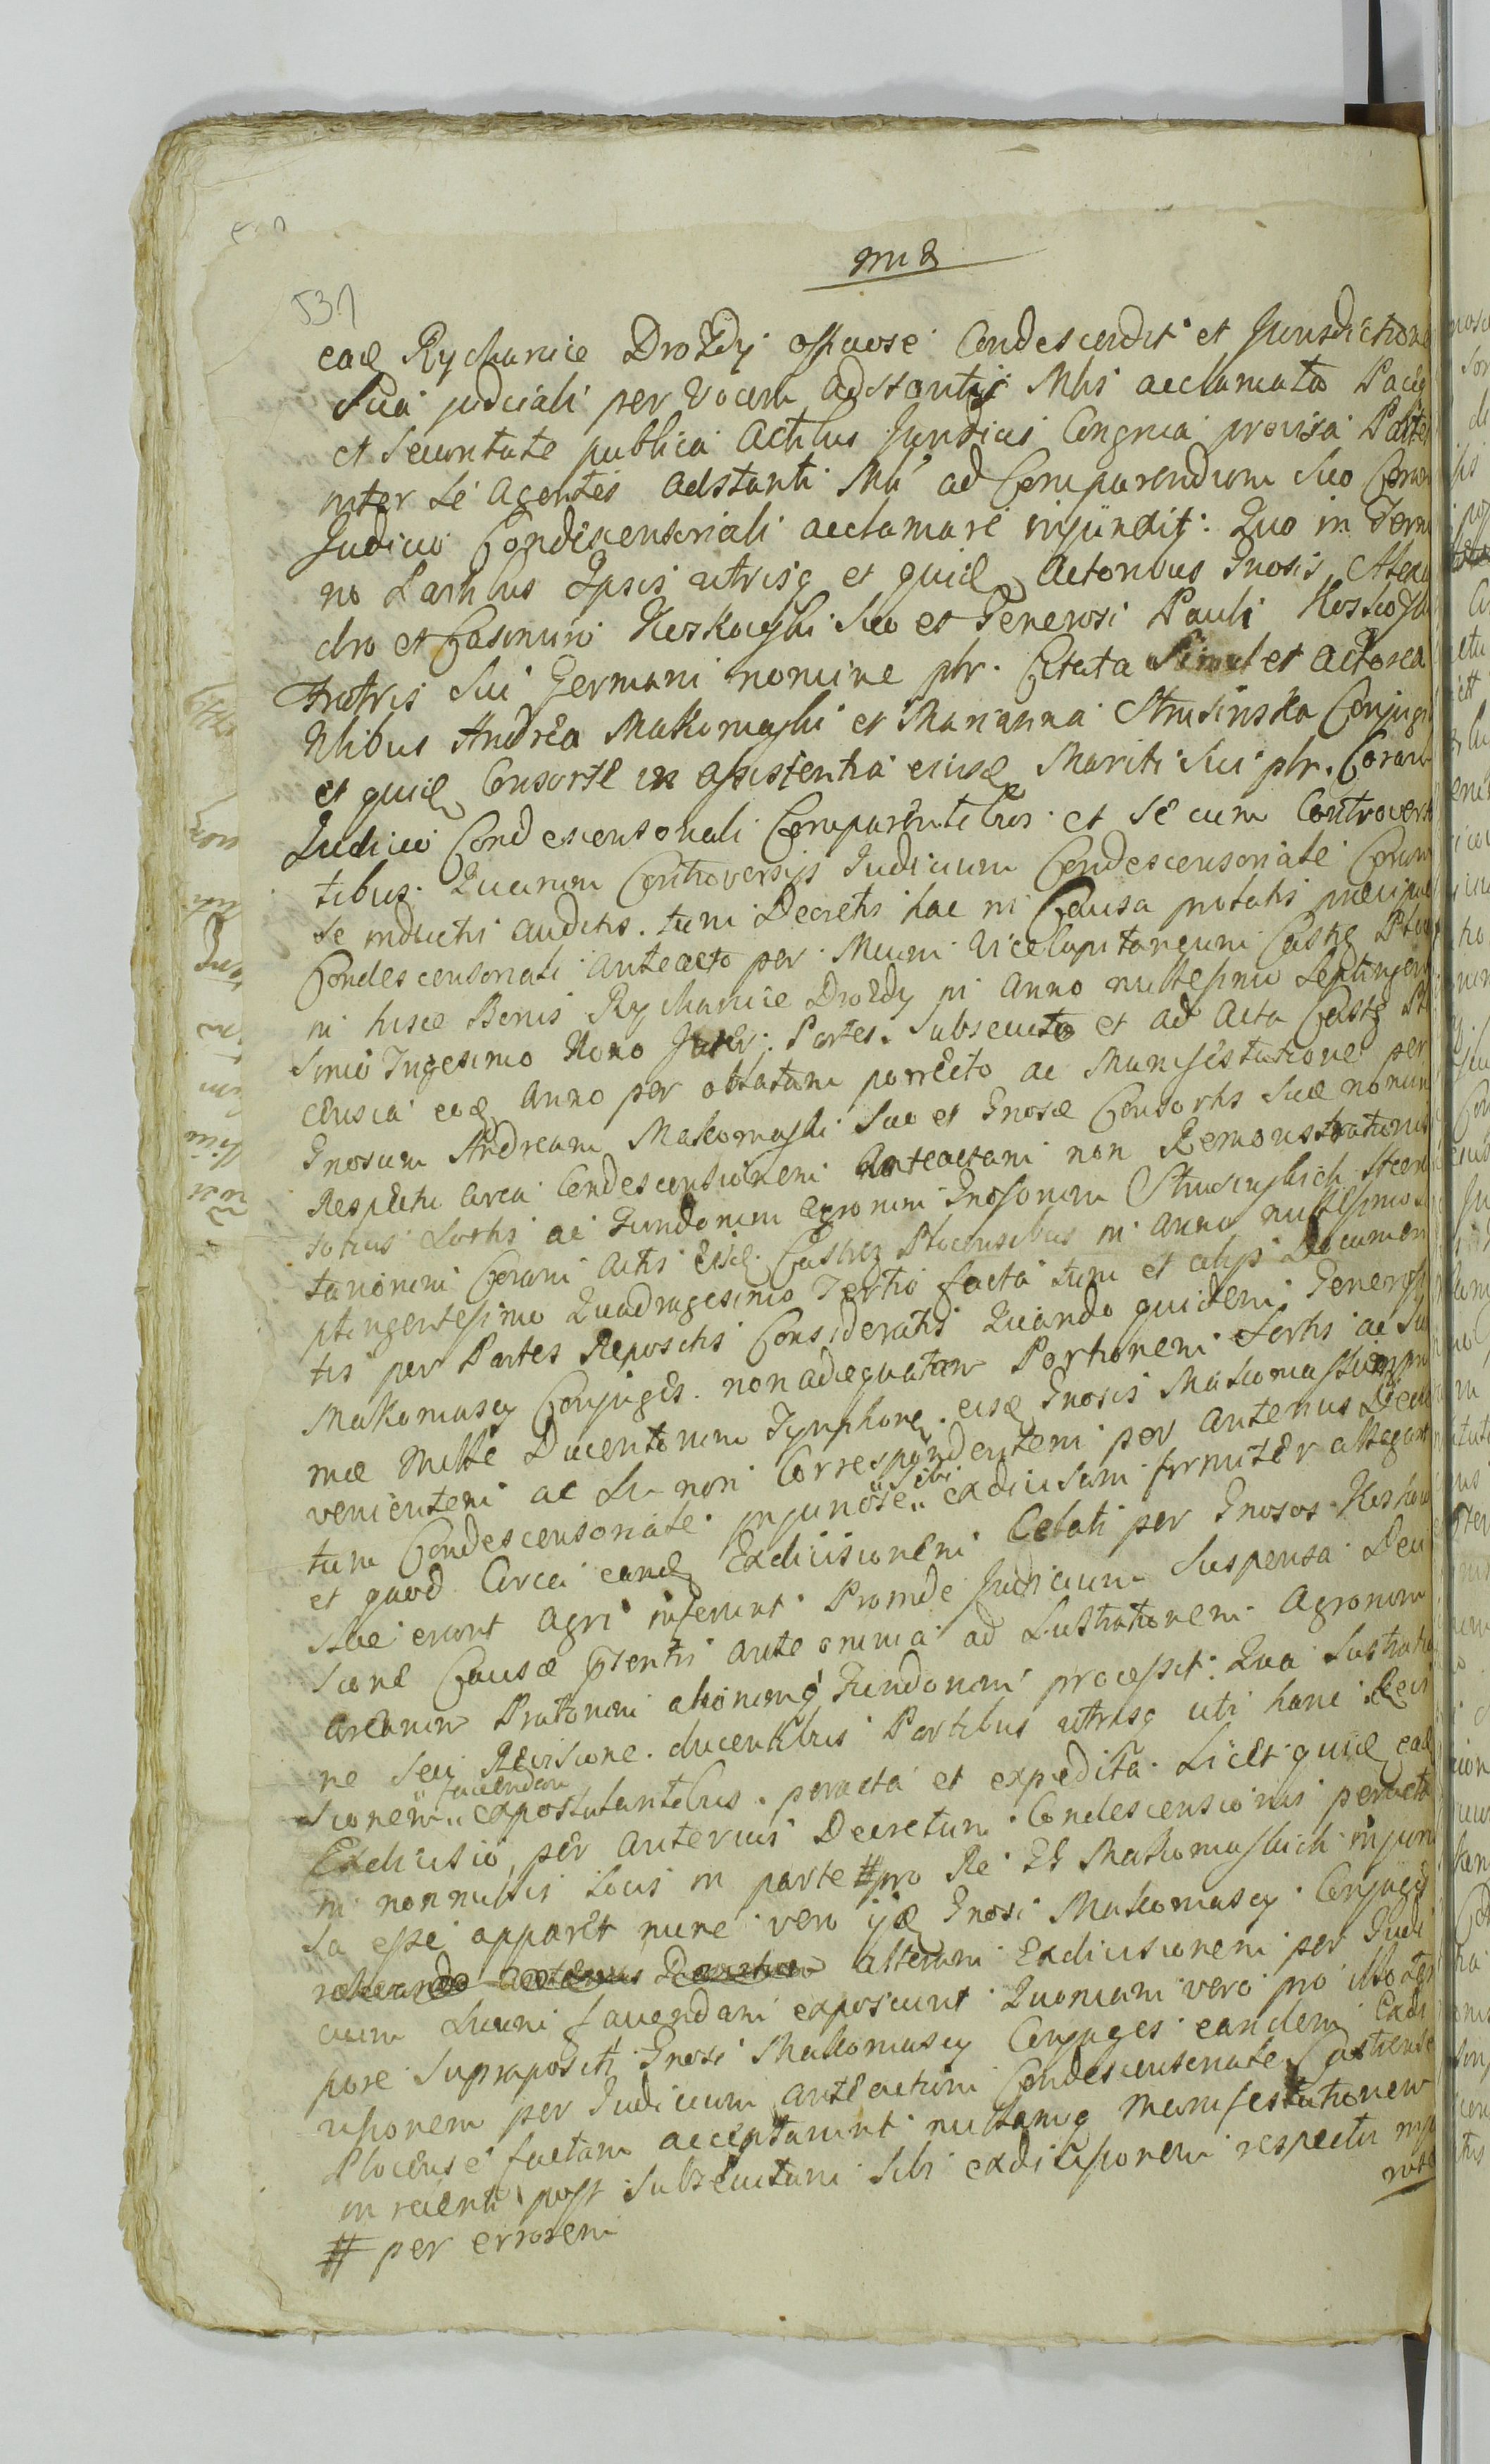 531
eaē Rychanice Drozdy officiose Condescendit et Jurisdictione
Sua judiciali per vocem adstantis Mlis acclamata Pace
et securitate publica actibus Juridicis Congrua provisa Partes
inter se agentes adstanti Mli ad Comparendum suo Coram
Judicio Condescensoriali acclamare injunxit. Quo in Termi
no Partibus Ipsis utrisq et quid Actoribus Gnosis Alexan
dro et Casimiro Koskowski suo et Generosi Pauli
Fratris sui Germani nomine pbr. Citata simul et actorea
Nlibus Andrea Makomaski et Marianna Strusinska Conjugi
et quid Consorte in assistentia ejusd Mariti sui pbr. Coram
Judicio Condescensoriali Comparentibus et se cum Controver
tibus. Quarum Controversijs Judicium Condescensoriale Coram
se inductis auditis. tum Decretis hac in Causa probatis
Condescensoriali anteacto per Vicecapitaneum Castr
in hisce Bonis Rychanice Drozdy in anno millesimo Septingen
simo Nono Inter Partes subsecuto et ad Acta Castr
censia eod anno per oblatam porrecto ac Manifestatione per
Gnosum Andream Makomaski suo et Gnosae Consortis suae nomin
respectu circa Condescensionem anteactam non Remonstrationis
totius sortis ac Fundorum agrorum Gnosorum Strusinskich
Coram actis eisd Castren Plocensibus in anno millesimo
ptingentesimo Quadragesimo Tertio facta tum et alijs Documen
tis per Partes Repositis Consideratis Quando quidem Generosi
Makomascy Conjuges non adaequatam Portionem sortis ac Su
mae Mille Ducentorum Tymphorum eisd Gnosis Makomaskim
venientem ac non Correspondentem per anterius Decre
tum Condescensoriale injuriose sibi exdivisam firmiter allegant
et quod Circa eand Exdivisionem Celati per Gnosos
erant agri inferunt Proinde Judicium Suspensa Deci
sione Causae pntis ante omnia ad Lustrationem Agrorum
Arearum Pratorum aliorumq Fundorum processit. Qua Lustratio
ne seu Revisione ducentibus Partibus utrisq uti hanc Revi
sionem faciendam expostulantibus peracta et expedita Licet quid ead
Exdivisio per anterius Decretum Condescensionis peracta
in nonnullis locis in parte # pro Re GG Makomaskich injurio
sa esse apparet nunc vero ijd Gnosi Makomascy Conjuges
alteram Exdivisionem per Judi
cium suum faciendam exposcunt Quoniam vero pro illo tem
pore suprapositi Gnosi Makomascy Conjuges eandem Exdi
visionem per Judicium anteactum Condescensoriale Castrense
Plocense factam acceptarunt nullamq manifestationem
in recenti post subsecutam sibi exdivisionem respectu inju
# per errorem